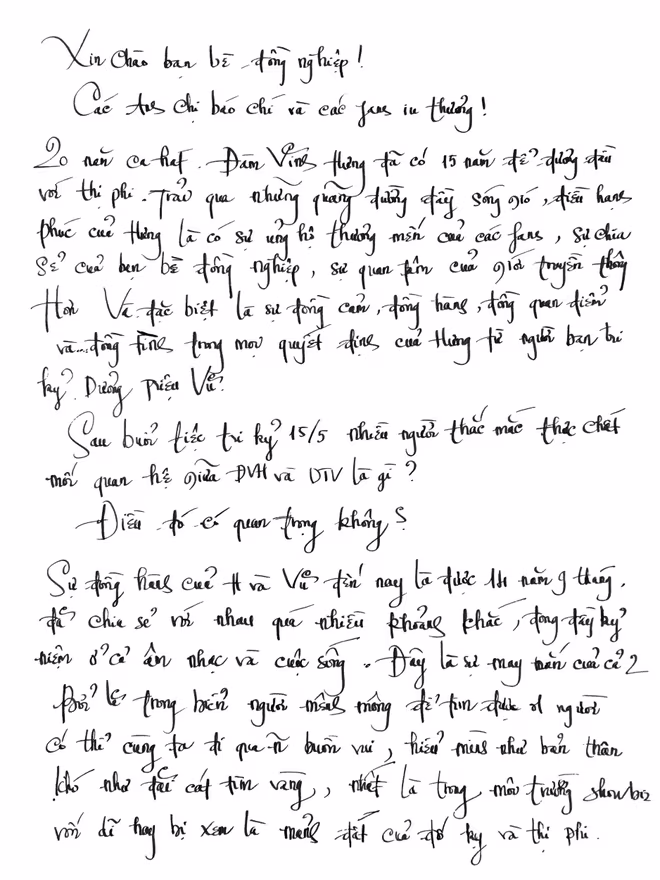 Xin chào bạn bè đồng nghiệp!
Các Ans chị báo chí và các fans iu thương!
20 năm ca hát. Đàm Vĩnh Hưng đã có 15 năm để đương đầu
với thị phi. Trải qua những quãng đường đầy sóng gió, điều hạnh
phúc của Hưng là có sự ủng hộ thương mến của các fans, sự chia
sẻ của bạn bè đồng nghiệp, sự quan tâm của giới truyền thông
Hơn Và đặc biệt là sự đồng cảm, đồng hành, đồng quan điểm
và... đồng tình trong mọi quyết định của Hưng từ người bạn tri
kỷ? Dương Triệu Vũ.
Sau buổi tiệc tri kỷ 15/5 nhiều người thắc mắc thực chất
mối quan hệ giữa ĐVH và DTV là gì?
Điều đó có quan trọng không?
Sự đồng hành của H và Vũ đến nay là được 14 năm 9 tháng.
đã chia sẻ với nhau quá nhiều khoảng khắc, đong đầy kỷ
niệm ở cả âm nhạc và cuộc sống. Đây là sự may mắn của cả 2
Bởi lẽ trong biển người mênh mông để tìm được 01 người
có thể cùng ta đi qua n buồn vui, hiểu mình như bản thân
khó như đãi cát tìm vàng, nhất là trong môi trường showbiz
vốn dĩ hay bị xem là mảnh đất của đố kỵ và thị phi.